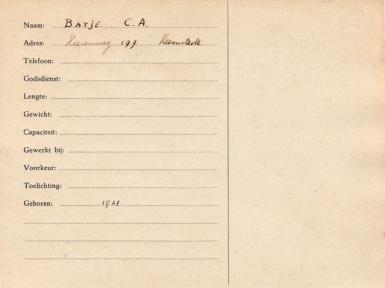 Naam: BATJE C.A.
Adres: Herenweg 199 Heemstede
Telefoon:
Godsdienst:
Lengte:
Gewicht:
Capaciteit:
Gewerkt bij:
Voorkeur:
Toelichting:
Geboren: 1921